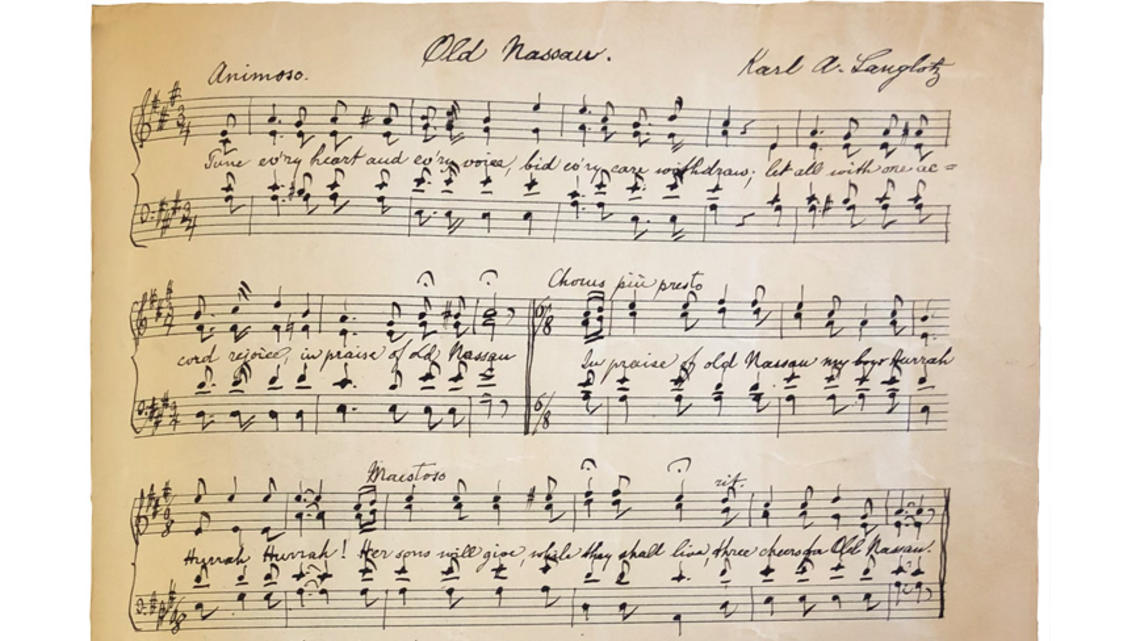 Old Nassau.
Animoso.
Karl A. Langlotz
3/4
Tune ev'ry heart and ev'ry voice, bid ev'ry care withdraw; let all with one ac=
3/4
Chorus più presto
6/8
cord rejoice, in praise of old Nassau In praise of old Nassau my boys Hurrah
6/8
Maestoso
rit.
9/8
Hurrah Hurrah! Her sons will give, while they shall live, three cheers for Old Nassau.
9/8